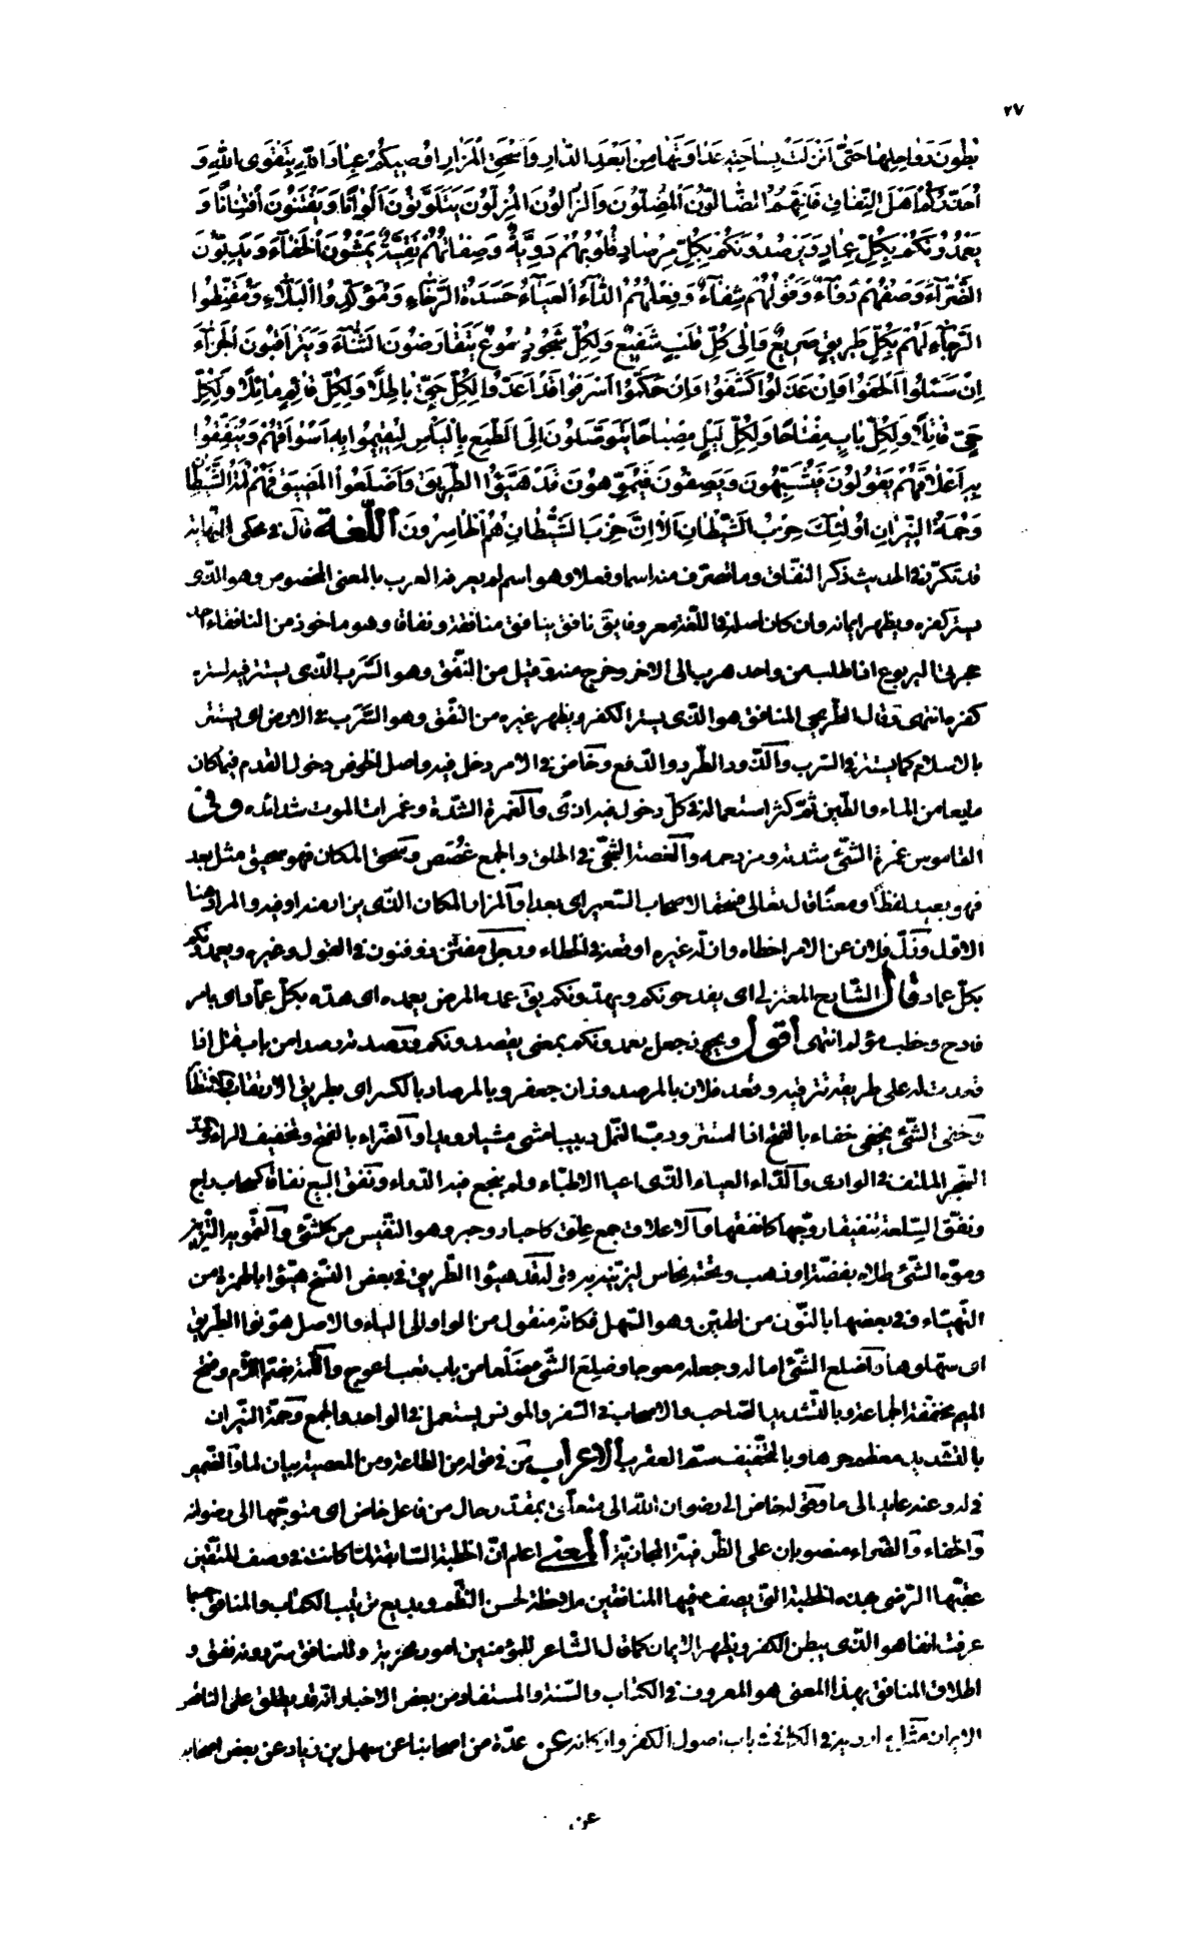 ٢٧
بُطُونَ رَوَاحِلِهَا حَتّٰى أَنْزَلَتْ بِسَاحَتِهِ عَدَاوَتَهَا مِنْ أَبْعَدِ الدَّارِ وَأَسْحَقِ الْمَزَارِ أُوصِيكُمْ عِبَادَ اللهِ بِتَقْوَى اللهِ وَ
أُحَذِّرُكُمْ أَهْلَ النِّفَاقِ فَإِنَّهُمُ الضَّالُّونَ الْمُضِلُّونَ وَالزَّالُّونَ الْمُزِلُّونَ يَتَلَوَّنُونَ أَلْوَانًا وَيَفْتَنُّونَ افْتِنَانًا وَ
يَعْمِدُونَكُمْ بِكُلِّ عِمَادٍ وَيَرْصُدُونَكُمْ بِكُلِّ مِرْصَادٍ قُلُوبُهُمْ دَوِيَّةٌ وَصِفَاحُهُمْ نَقِيَّةٌ يَمْشُونَ الْخَفَاءَ وَيَدِبُّونَ
الضَّرَاءَ وَصْفُهُمْ دَوَآءٌ وَقَوْلُهُمْ شِفَآءٌ وَفِعْلُهُمُ الدَّآءُ الْعَيَآءُ حَسَدَةُ الرَّخَاءِ وَمُؤَكِّدُوا الْبَلَاءِ وَمُقْنِطُوا
الرَّجَاءِ لَهُمْ بِكُلِّ طَرِيقٍ صَرِيعٌ وَإِلى كُلِّ قَلْبٍ شَفِيعٌ وَلِكُلِّ شَجْوٍ دُمُوعٌ يَتَقَارَضُونَ الثَّنَآءَ وَيَتَرَاقَبُونَ الْجَزَآءَ
إِنْ سَئَلُوا أَلْحَفُوا وَإِنْ عَذَلُوا كَشَفُوا وَإِنْ حَكَمُوا أَسْرَفُوا قَدْ أَعَدُّوا لِكُلِّ حَقٍّ بَاطِلًا وَلِكُلِّ قَائِمٍ مَائِلًا وَلِكُلِّ
حَيٍّ قَاتِلًا وَلِكُلِّ بَابٍ مِفْتَاحًا وَلِكُلِّ لَيْلٍ مِصْبَاحًا يَتَوَصَّلُونَ إِلَى الطَّمَعِ بِالْيَأْسِ لِيُقِيمُوا بِهِ أَسْوَاقَهُمْ وَيُنَفِّقُوا
بِهِ أَعْلَاقَهُمْ يَقُولُونَ فَيُشَبِّهُونَ وَيَصِفُونَ فَيُمَوِّهُونَ قَدْ هَيَّؤُا الطَّرِيقَ وَأَضْلَعُوا الْمَضِيقَ فَهُمْ لُمَةُ الشَّيْطَانِ
وَحُمَةُ النِّيرَانِ أُولٰئِكَ حِزْبُ الشَّيْطَانِ أَلَا إِنَّ حِزْبَ الشَّيْطَانِ هُمُ الْخَاسِرُونَ اللّغة قال في محكي النهاية
قد تكرّر في الحديث ذكر النفاق وما تصرّف منه اسما وفعلا وهو اسم لم يعرفه العرب بالمعنى المخصوص وهو الذي
يستر كفره ويظهر ايمانه وان كان اصله في اللّغة معروفا يق نافق ينافق منافقة ونفاقا وهو ماخوذ من النافقاء احد
جحرتى اليربوع اذا طلب من واحد هرب الى الاخر وخرج منه وقيل من النّفق وهو السَّرَب الذي يستتر فيه لستره
كفره انتهى وقال الطّريحي المنافق هو الذي يستر الكفر ويظهر غيره من النّفق وهو السَّرَب في الارض اى يستتر
بالاسلام كما يستتر في السّرب والذّود الطّرد والدّفع وخاض في الامر دخل فيه واصل الخوض دخول القدم فيما كان
مايعا من الماء والطّين ثمّ كثر استعماله في كلّ دخول فيه اذى والغمرة الشّدّة وغمرات الموت شدائده وفي
القاموس غمرة الشّئ شدته ومزدحمه والغصة الشّجى في الحلق والجمع غُصَص وسحق المكان فهو سحيق مثل بعد
فهو بعيد لفظًا ومعنًا قال تعالى فسحقا لاصحاب السّعير اى بعدا والمزار المكان الذي يزار منه او فيه والمراد هنا
الاوّل وزلّ فلان عن الامر اخطاه وازلّه غيره اوقعه في الخطاء ورجل مفتنّ ذو فنون في القول وغيره ويعمدونكم
بكلّ عماد قال الشّارح المعتزلي اى يفدحونكم ويهدّونكم يق عمده المرض يعمده اى هدّه بكلّ عماد اى بامر
فادح وخطب مؤلم انتهى أقول ويجوز جعل يعمدونكم بمعنى يقصدونكم ورصدته رصدا من باب قتل اذا
قعدت له على طريقه تترقبه وقعد فلان بالمرصد وزان جعفر وبالمرصاد بالكسر اى بطريق الارتقاب والانتظار
وخفى الشّئ يخفى خفاء بالفتح اذا استتر ودبّ النّمل دبيبا مشى مشيا رويدا والضّراء بالفتح وتخفيف الراء والمدّ
الشّجر الملتفّ في الوادى والدّاء العياء الذي اعيا الاطبّاء ولم ينجع فيه الدّواء ونَفَق البيع نفاقا كسحاب راج
ونفّق السّلعة تنفيقا روّجها كانفقها والاعلاق جمع عِلق كاحبار وحبر وهو النّفيس من كلّ شئ والتّمويه التّزيين
وموّه الشّئ طلاه بفضّة او ذهب وتحته نحاس ليزيّنه به وقوله قد هيّؤا الطّريق في بعض النّسخ هيّؤا بالهمزة من
التّهيئة وفي بعضها بالنّون من الهيّن وهو السّهل فكانّه منقول من الواو الى الياء والاصل هوّنوا الطّريق
اى سهّلوها واضلع الشّئ اماله وجعله معوجا وضلِع الشّئ ضلعا من باب تعب اعوج واللّمة بضمّ اللّام وفتح
الميم مخفّفة الجماعة وبالتّشديد الصّاحب والاصحاب في السّفر والمونس يستعمل في الواحد والجمع وحمّة النّيران
بالتّشديد معظم حرها وبالتّخفيف سمّ العقرب الاعراب من في قوله من الطاعة ومن المعصية بيان لما والضّمير
في له وعنه عايد الى ما وقوله خاض الى رضوان الله الى متعلّق بمقدّر حال من فاعل خاض اى متوجّها الى رضوانه
والخفاء والضراء منصوبان على الظّرفيّة المجازيّة المعنى اعلم انّ الخطبة السّابقة لمّا كانت في وصف المتّقين
عقّبها الرّضى بهذه الخطبة الّتي يصف فيها المنافقين ملاحظة لحسن النّظم وبديع ترتيب الكتاب والمنافق حسبما
عرفت انفا هو الذي يبطن الكفر ويظهر الايمان كما قال الشّاعر للمؤمنين امور مخزية وللمنافق سرّ دونه نفق و
اطلاق المنافق بهذا المعنى هو المعروف في الكتاب والسّنة والمستفاد من بعض الاخبار انّه قد يطلق على النّاقص
الايمان مثل ما رويه في الكافي في باب اصول الكفر واركانه عن عدّة من اصحابنا عن سهل بن زياد عن بعض اصحابه
عن